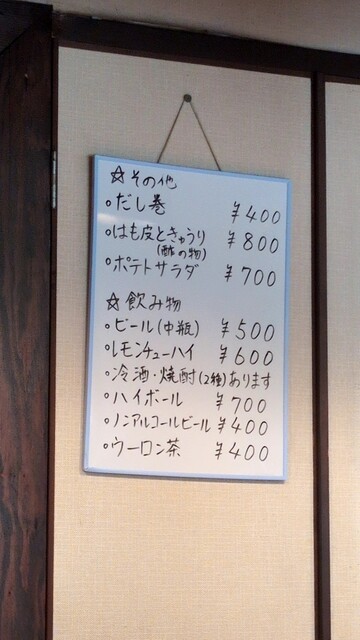 ☆その他
・だし巻 ¥400
・はも皮ときゅうり ¥800
(酢の物)
・ポテトサラダ ¥700
☆飲み物
・ビール(中瓶) ¥500
・レモンチューハイ ¥600
・冷酒・焼酎(2種)あります
・ハイボール ¥700
・ノンアルコールビール ¥400
・ウーロン茶 ¥400